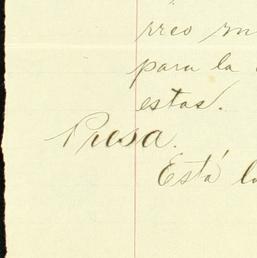 para la
estas.
Presa.
Está la